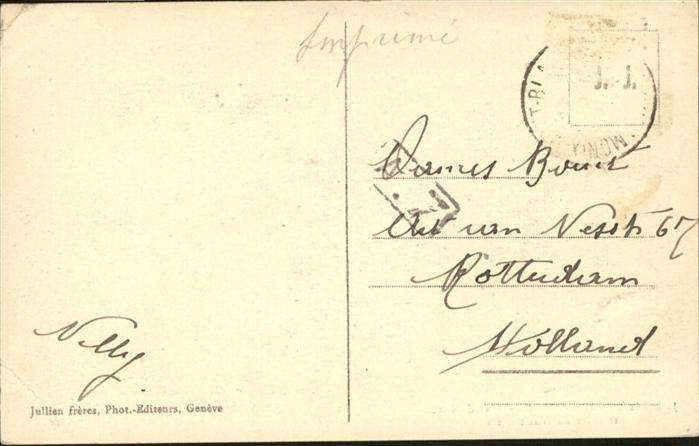 Imprimé
J. J.
T-BLA
MONT
Dames Bouet
Witt van Nesstr 67
Rotterdam
Holland
Nelly
Jullien frères, Phot.-Editeurs, Genève